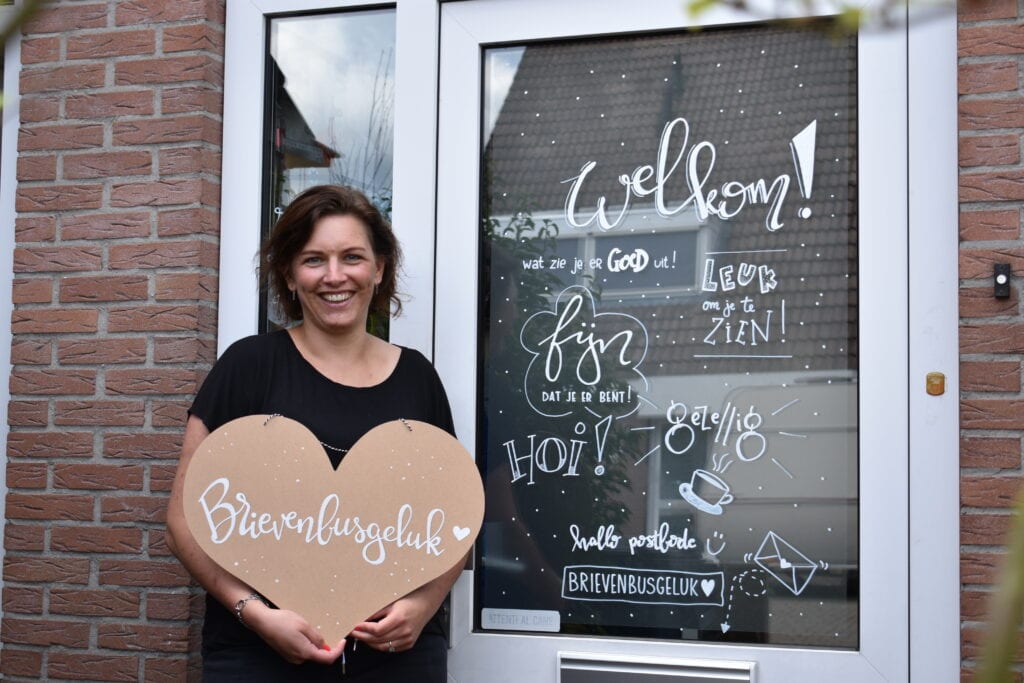 Welkom!
wat zie je er GOED uit!
LEUK
om je te
ZIEN!
fijn
DAT JE ER BENT!
gezellig
HOI!
Brievenbusgeluk
hallo postbode
BRIEVENBUSGELUK